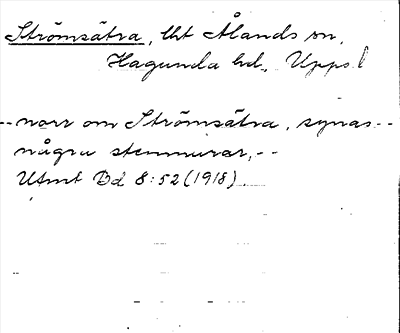 Strömsätra, lht Ålands sn,
Hagunda hd., Upps. l
-- norr om Strömsätra, synas --
några stenmurar, --
Utmt Bd 8:52 (1918).